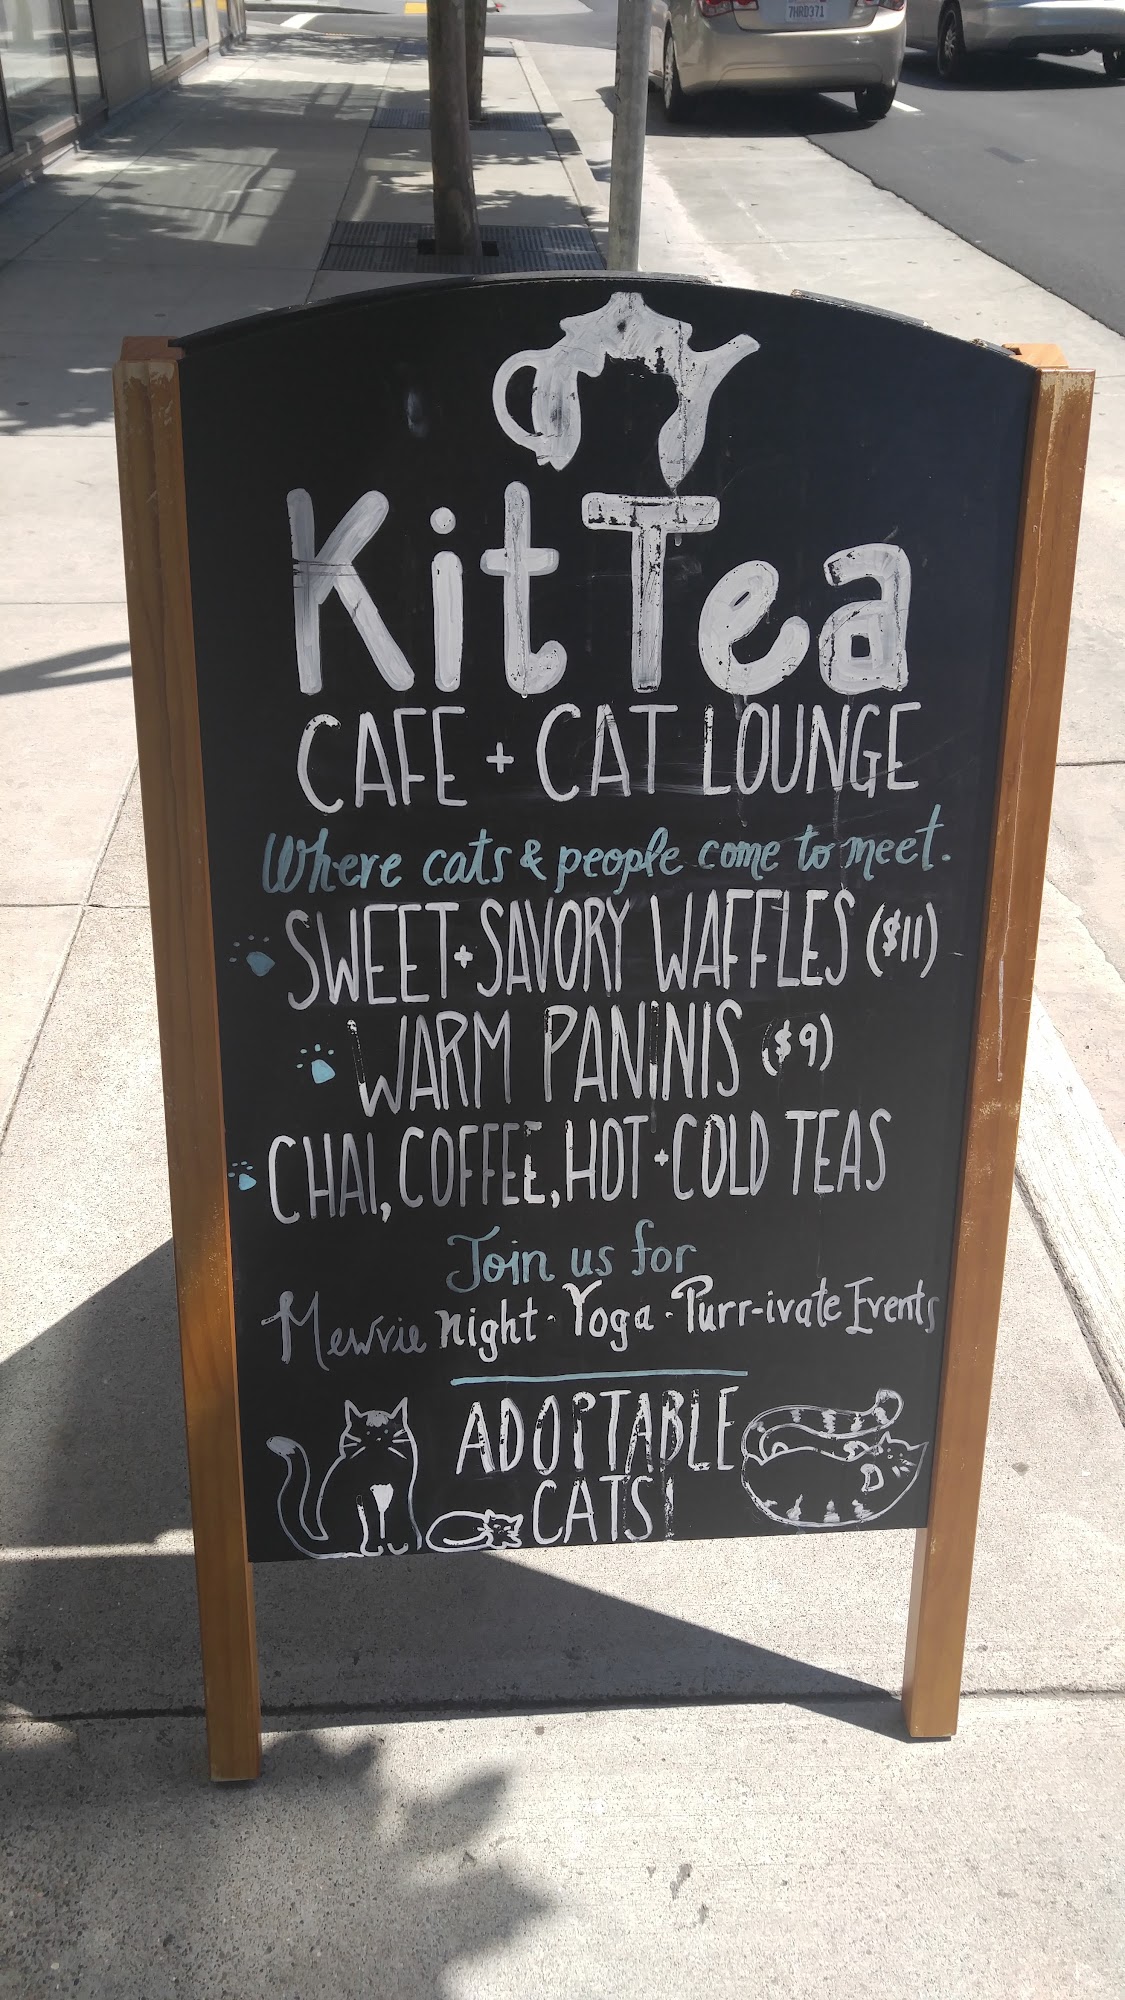 7HRD371
KitTea
CAFE + CAT LOUNGE
Where cats & people come to meet.
SWEET + SAVORY WAFFLES ($11)
WARM PANINIS ($9)
CHAI, COFFEE, HOT + COLD TEAS
Join us for
Mewvie night · Yoga · Purr-ivate Events
ADOPTABLE
CATS!